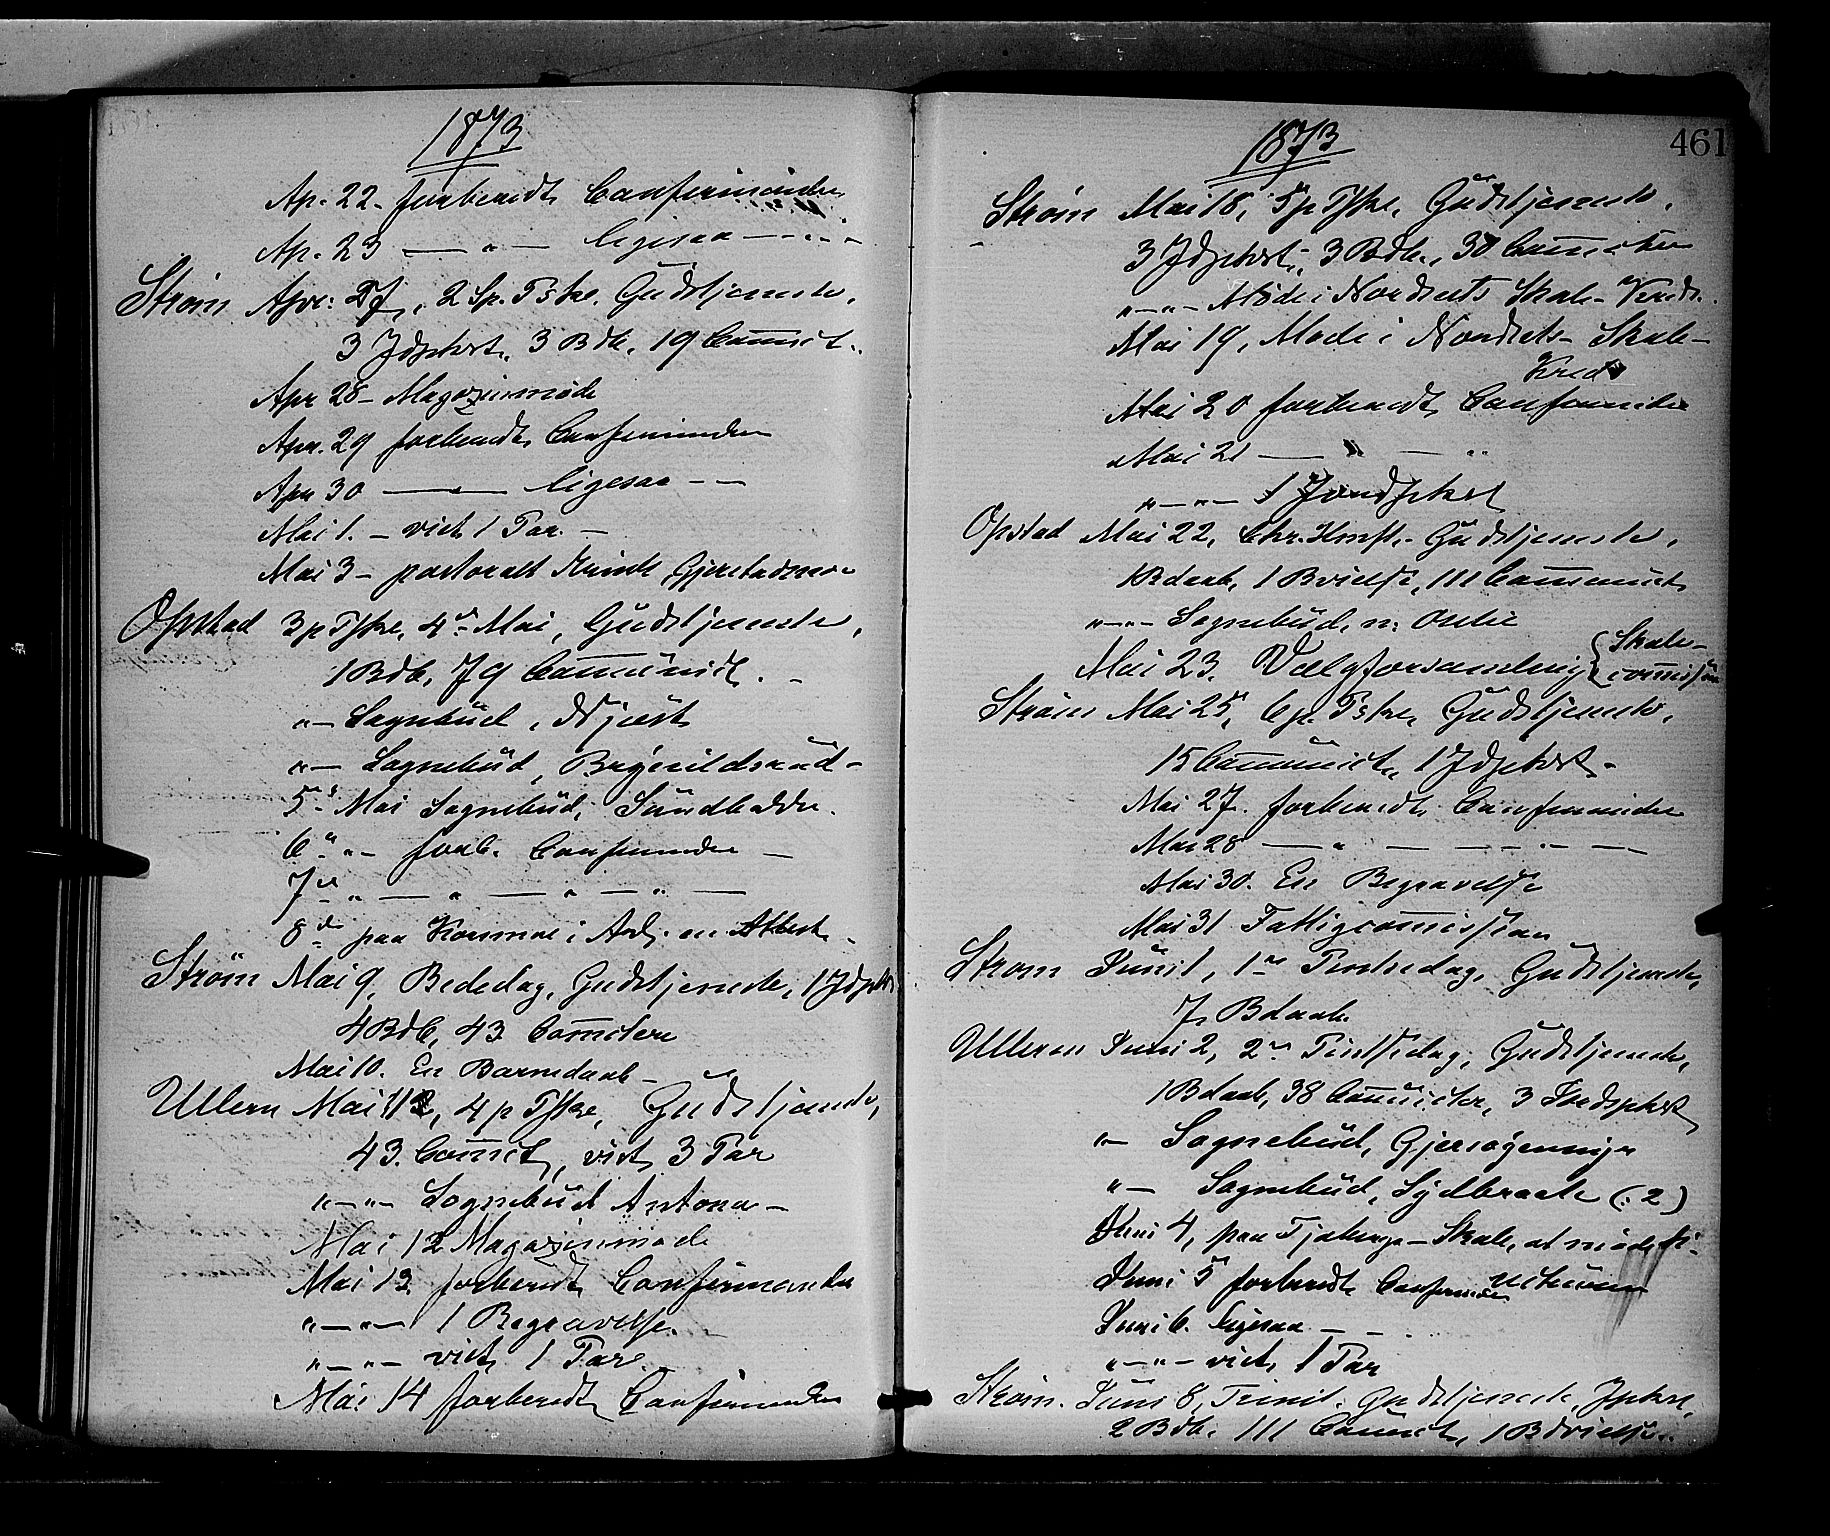 1873
Ap. 22. forberedt Confirmander
Ap. 23 — " — ligesaa — — —
Strøm Apr. 27, 2 Sp. Pske. Gudstjeneste,
3 Jdpkst., 3 Bdb., 19 Communict.
Apr 28 – Magazinmøde
Apr. 29 forberedt Confirmander
Apr 30 — — ligesaa — —
Mai 1. – viet 1 Par. –
Mai 3 – pastoralt Gjerstadmoe
Opstad 3 p Pske, 4de Mai, Gudstjeneste,
1 Bdb, 79 Communict. –
" – Sognebud,
" – Sognebud, Brynildsrud –
5te Mai Sognebud, Sundbadde.
6te " – forb. Confirmander –
7de " — " — " — " —
8de paa Korsmoe i en Attest –
Strøm Mai 9, Bededag, Gudstjeneste, 1 Jdpkst
4 Bdb, 43 Commctere
Mai 10. En Barnedaab –
Ullern Mai 11, 4 p Pske, Gudstjeneste,
43. Commct, viet 3 Par
" – " – Sognebud Antona –
Mai 12 Magazinmøde
Mai 13 forberedt Confirmander
" – " – 1 Begravelse.
" – " – viet 1 Par. –
Mai 14 forberedt Confirmander
1873
461
Strøm Mai 18, 5 p Pske, Gudstjeneste,
3 Jdpkst., 3 Bdb., 30 Commcter
" – " – Møde i Nordsets Skole – Kreds.
Mai 19, Møde i Nordsets – Skole –
Kreds
Mai 20 forberedt Confirmander
Mai 21 — " — "
" – " – 1 Jondpkst
Opstad Mai 22, Chr. Hmft. Gudstjeneste,
1 Bdaab, 1 Bvielse, 111 Communict
" – " – Sognebud, n:
Mai 23. Valgforsamling { Skole–
comission
Strøm Mai 25, 6 p. Pske, Gudstjeneste,
15 Communict, 1 Jdpkst –
Mai 27. forberedt Confirmander
Mai 28 — " — — " —
Mai 30. En Begravelse
Mai 31 Fattigcomission
Strøm Juni 1, 1ste Pintsedag, Gudstjeneste,
7 Bdaab
Ullern Juni 2, 2den Pintsedag, Gudstjeneste,
1 Bdaab, 38 Communicter, 3 Indspkst
" – Sognebud,
" – Sognebud, Sydbraate (: 2)
Juni 4, paa – Skole, at møde
Juni 5 forberedt Confirmander
Juni 6. ligesaa – –
" – " – viet 1 Par
Strøm. Juni 8, Trinit. Gudstjeneste, Jpkst,
2 Bdb. 111 Communict, 1 Bdvielse.